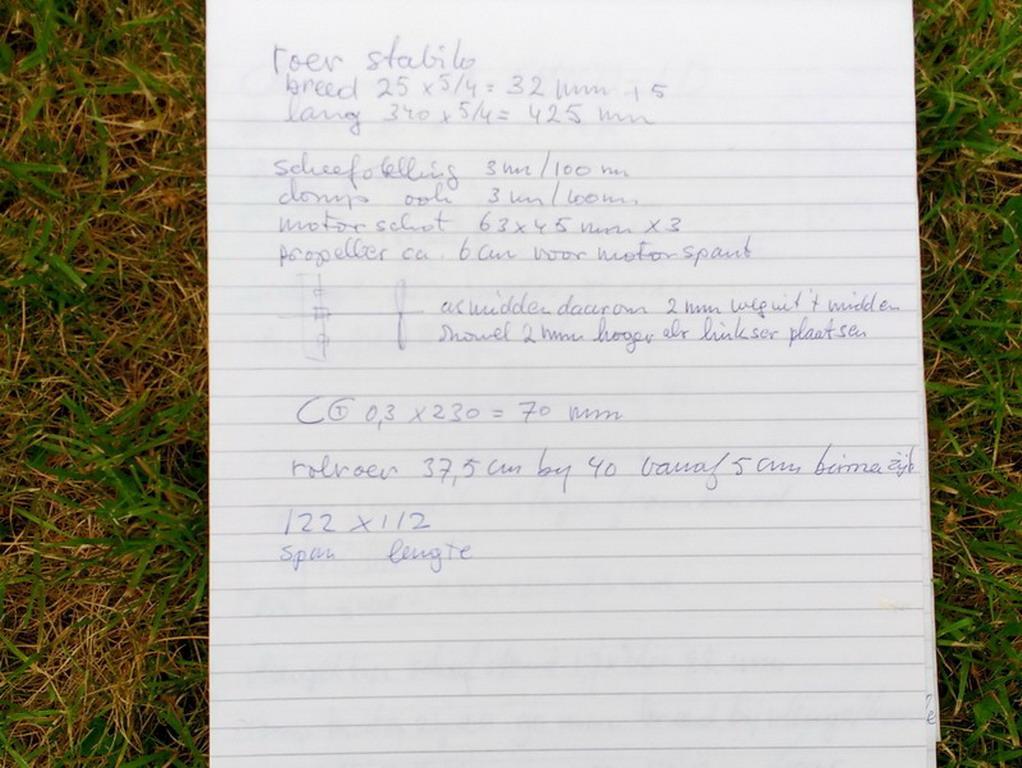 roer stabilo
breed 25 x 5/4 = 32 mm + 5
lang 340 x 5/4 = 425 mm
scheefstelling 3 mm/100 mm
domp ook 3 mm/100mm
motorschot 63 x 45 mm x 3
propeller ca. 6 cm voor motorspant
as midden daarom 2 mm weg uit 't midden
zowel 2 mm hoger als linkser plaatsen
CG 0,3 x 230 = 70 mm
rolroer 37,5 cm by 40 vanaf 5 cm binnen
122 x 112
span lengte